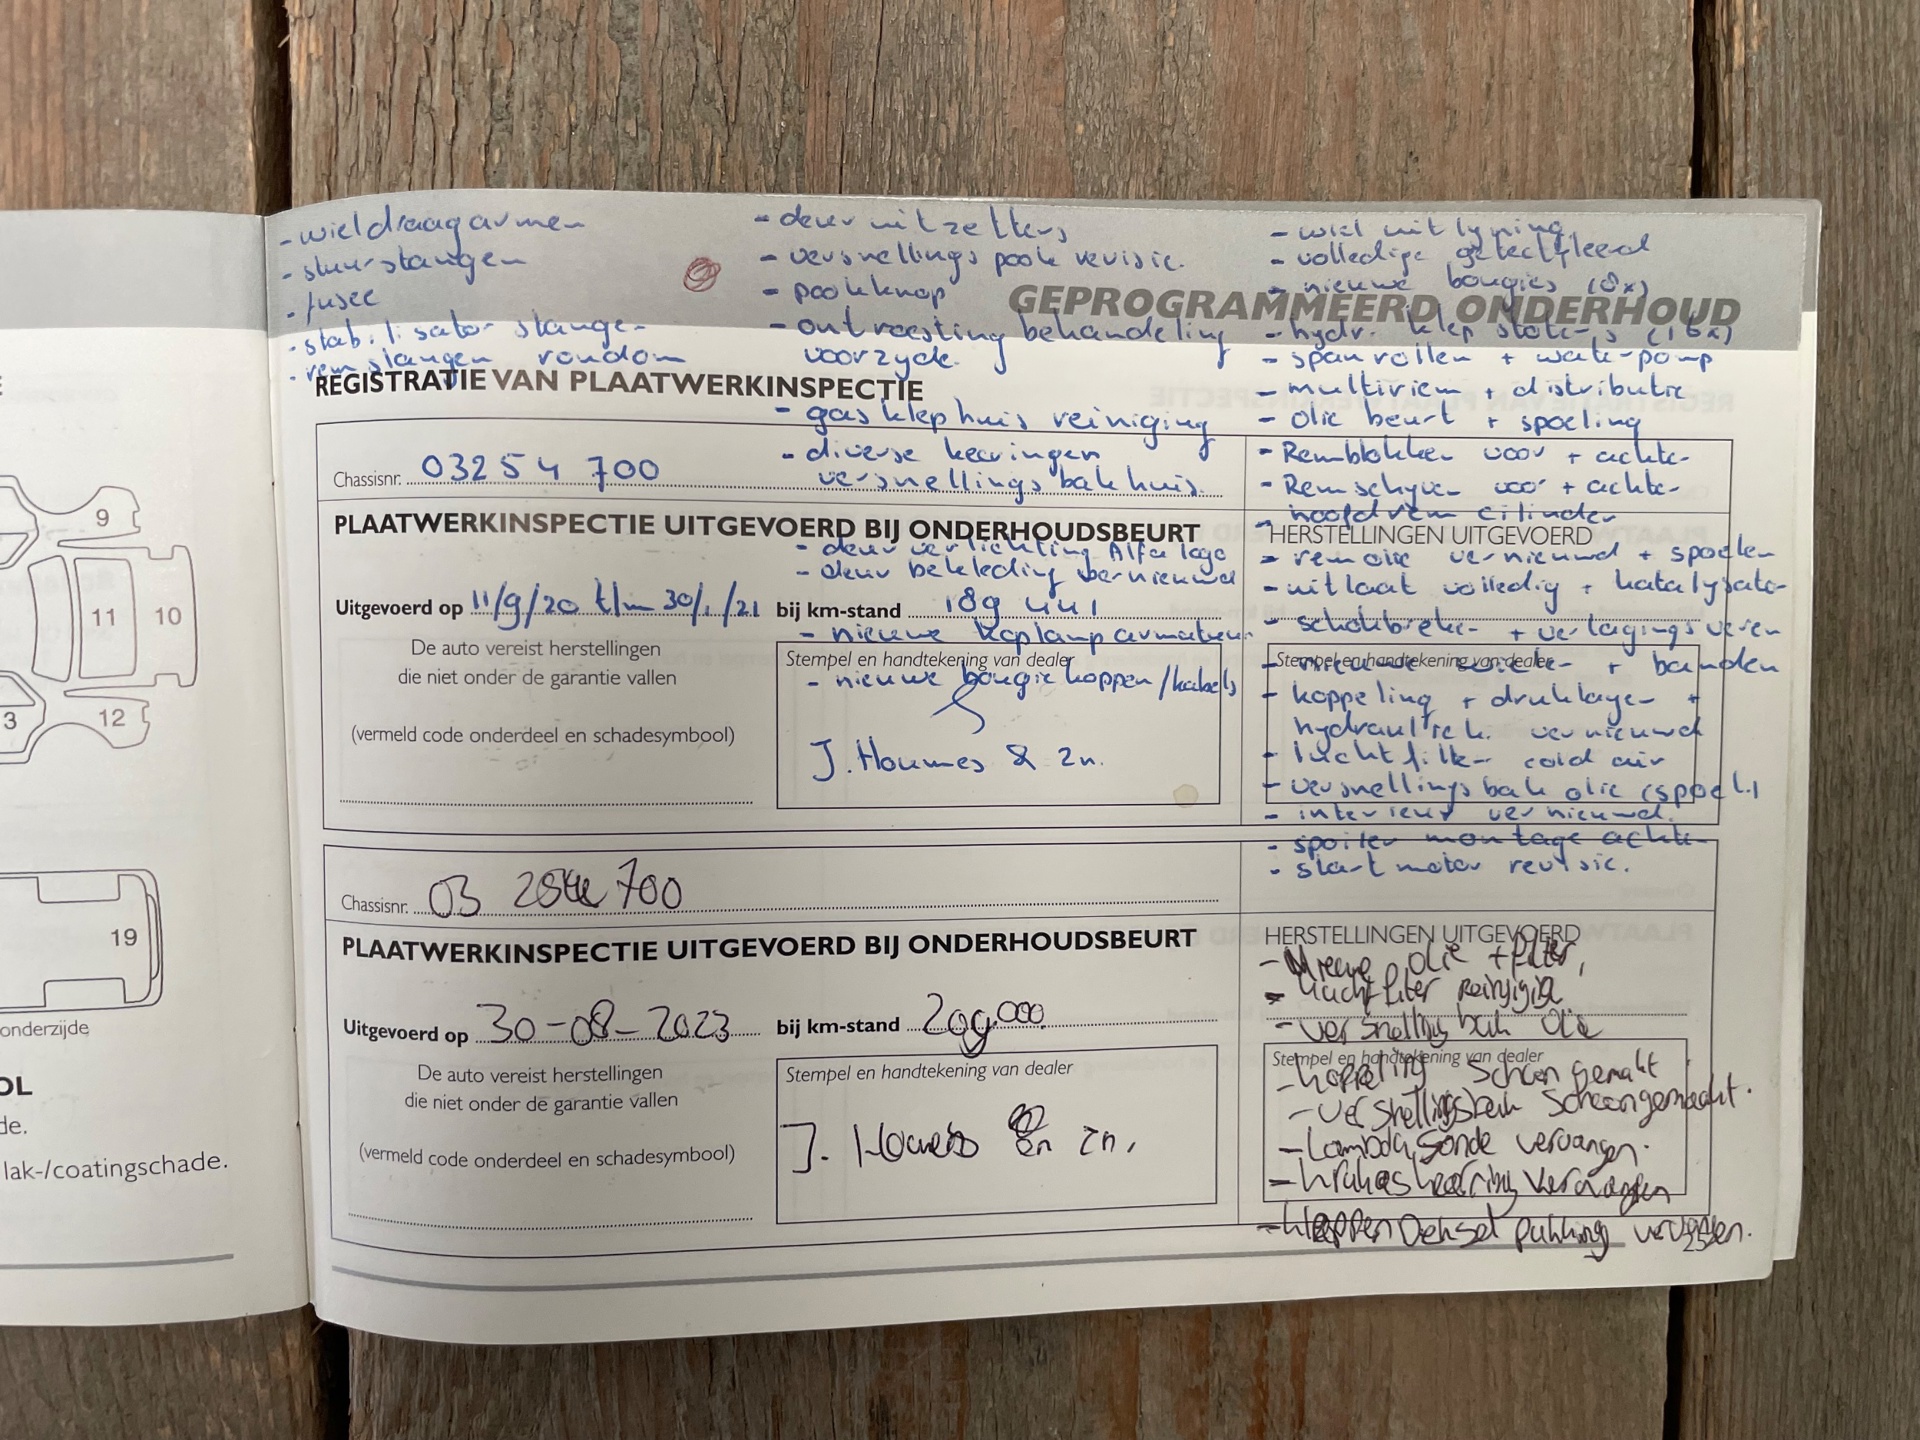 - wieldraagarmen
- stuurstangen
- fusee
- stabilisator stangen
- remslangen rondom
- deur uitzetters
- versnellings pook revisie.
- pookknop
- ontroesting behandeling
voorzyde.
- gasklephuis reiniging
- diverse keeringen
versnellings bak huis.
- deur verlichting Alfa logo
- deur bekleding vernieuwd
- nieuwe koplamp armaturen
- nieuwe bougie koppen/kabels
- wiel uitlyning
- volledige
- nieuwe bougies (8x)
- hydr. klep stoters (16x)
- spanrollen + waterpomp
- multiriem + distributie
- olie beurt + spoeling
- Remblokken voor + achter
- Remschyven voor + achter
- hoofdrem cilinder
- remolie vernieuwd + spoelen
- uitlaat volledig + katalysator
- schokbreker + verlagings veren
- nieuwe + banden
- koppeling + druklager +
hydraulisch. vernieuwd
- luchtfilter cold air
- versnellings bak olie (spoel.)
- interieur vernieuwd.
- spoiler montage achter
- startmotor revisie.
GEPROGRAMMEERD ONDERHOUD
REGISTRATIE VAN PLAATWERKINSPECTIE
Chassisnr. 03254 700
PLAATWERKINSPECTIE UITGEVOERD BIJ ONDERHOUDSBEURT
HERSTELLINGEN UITGEVOERD
Uitgevoerd op 11/9/20 t/m 30/1/21 bij km-stand 189 441
De auto vereist herstellingen
die niet onder de garantie vallen
(vermeld code onderdeel en schadesymbool)
Stempel en handtekening van dealer
J. Houmes & zn.
Stempel en handtekening van dealer
Chassisnr. 03 254 700
PLAATWERKINSPECTIE UITGEVOERD BIJ ONDERHOUDSBEURT
HERSTELLINGEN UITGEVOERD
Uitgevoerd op 30-08-2023 bij km-stand 209.000
De auto vereist herstellingen
die niet onder de garantie vallen
(vermeld code onderdeel en schadesymbool)
Stempel en handtekening van dealer
J. en zn.
Stempel en handtekening van dealer
- Nieuwe olie + filter,
- Luchtfilter
- versnellingbak olie
- koppeling Schoon gemakt
- versnellingsbak Schoongemaakt.
- Lambda Sonde vervangen.
- krukas keerring vervangen
- kleppen deksel pakking vervangen.
25
9
11
10
3
12
19
onderzijde
OL
de.
lak-/coatingschade.